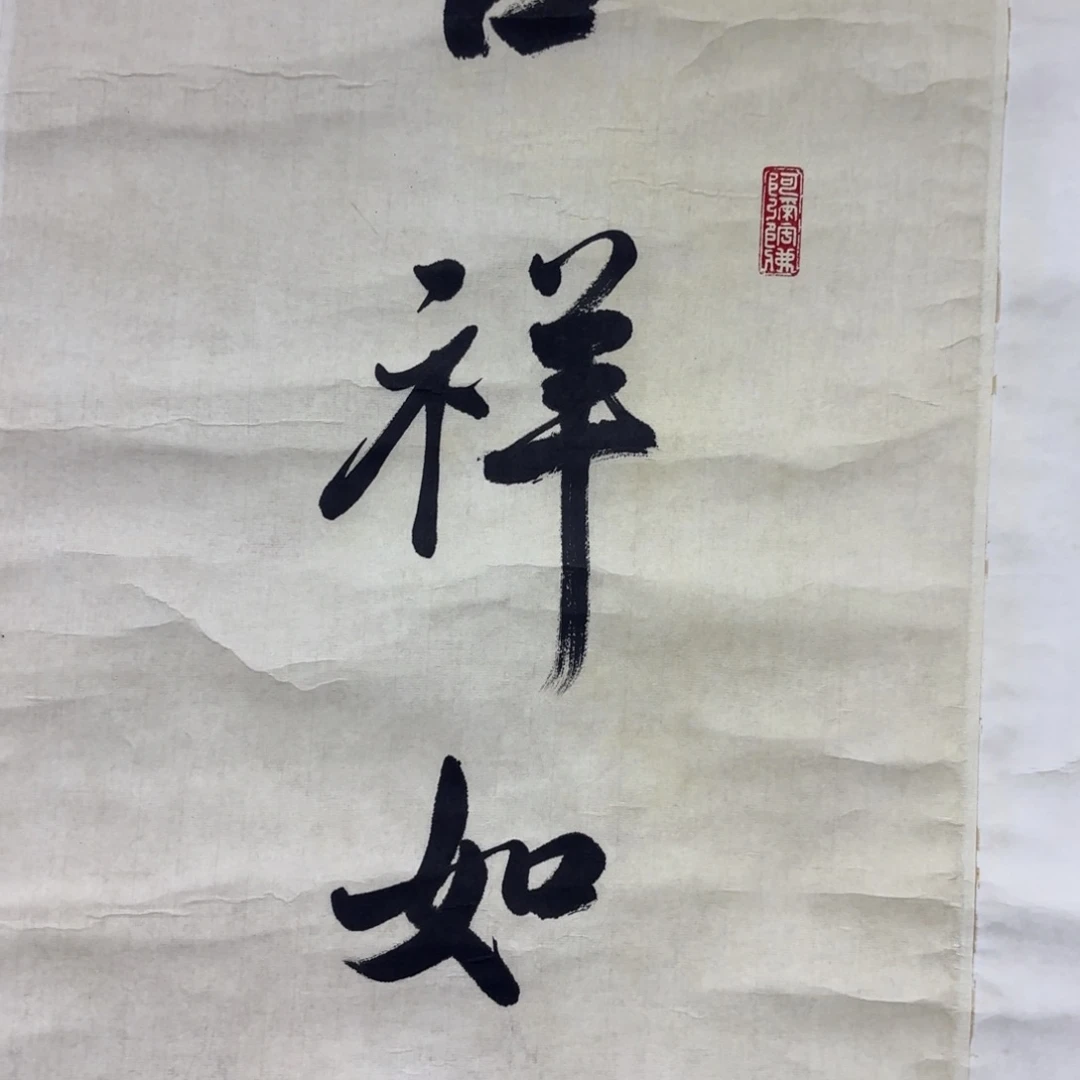 祥如
阿彌陀佛